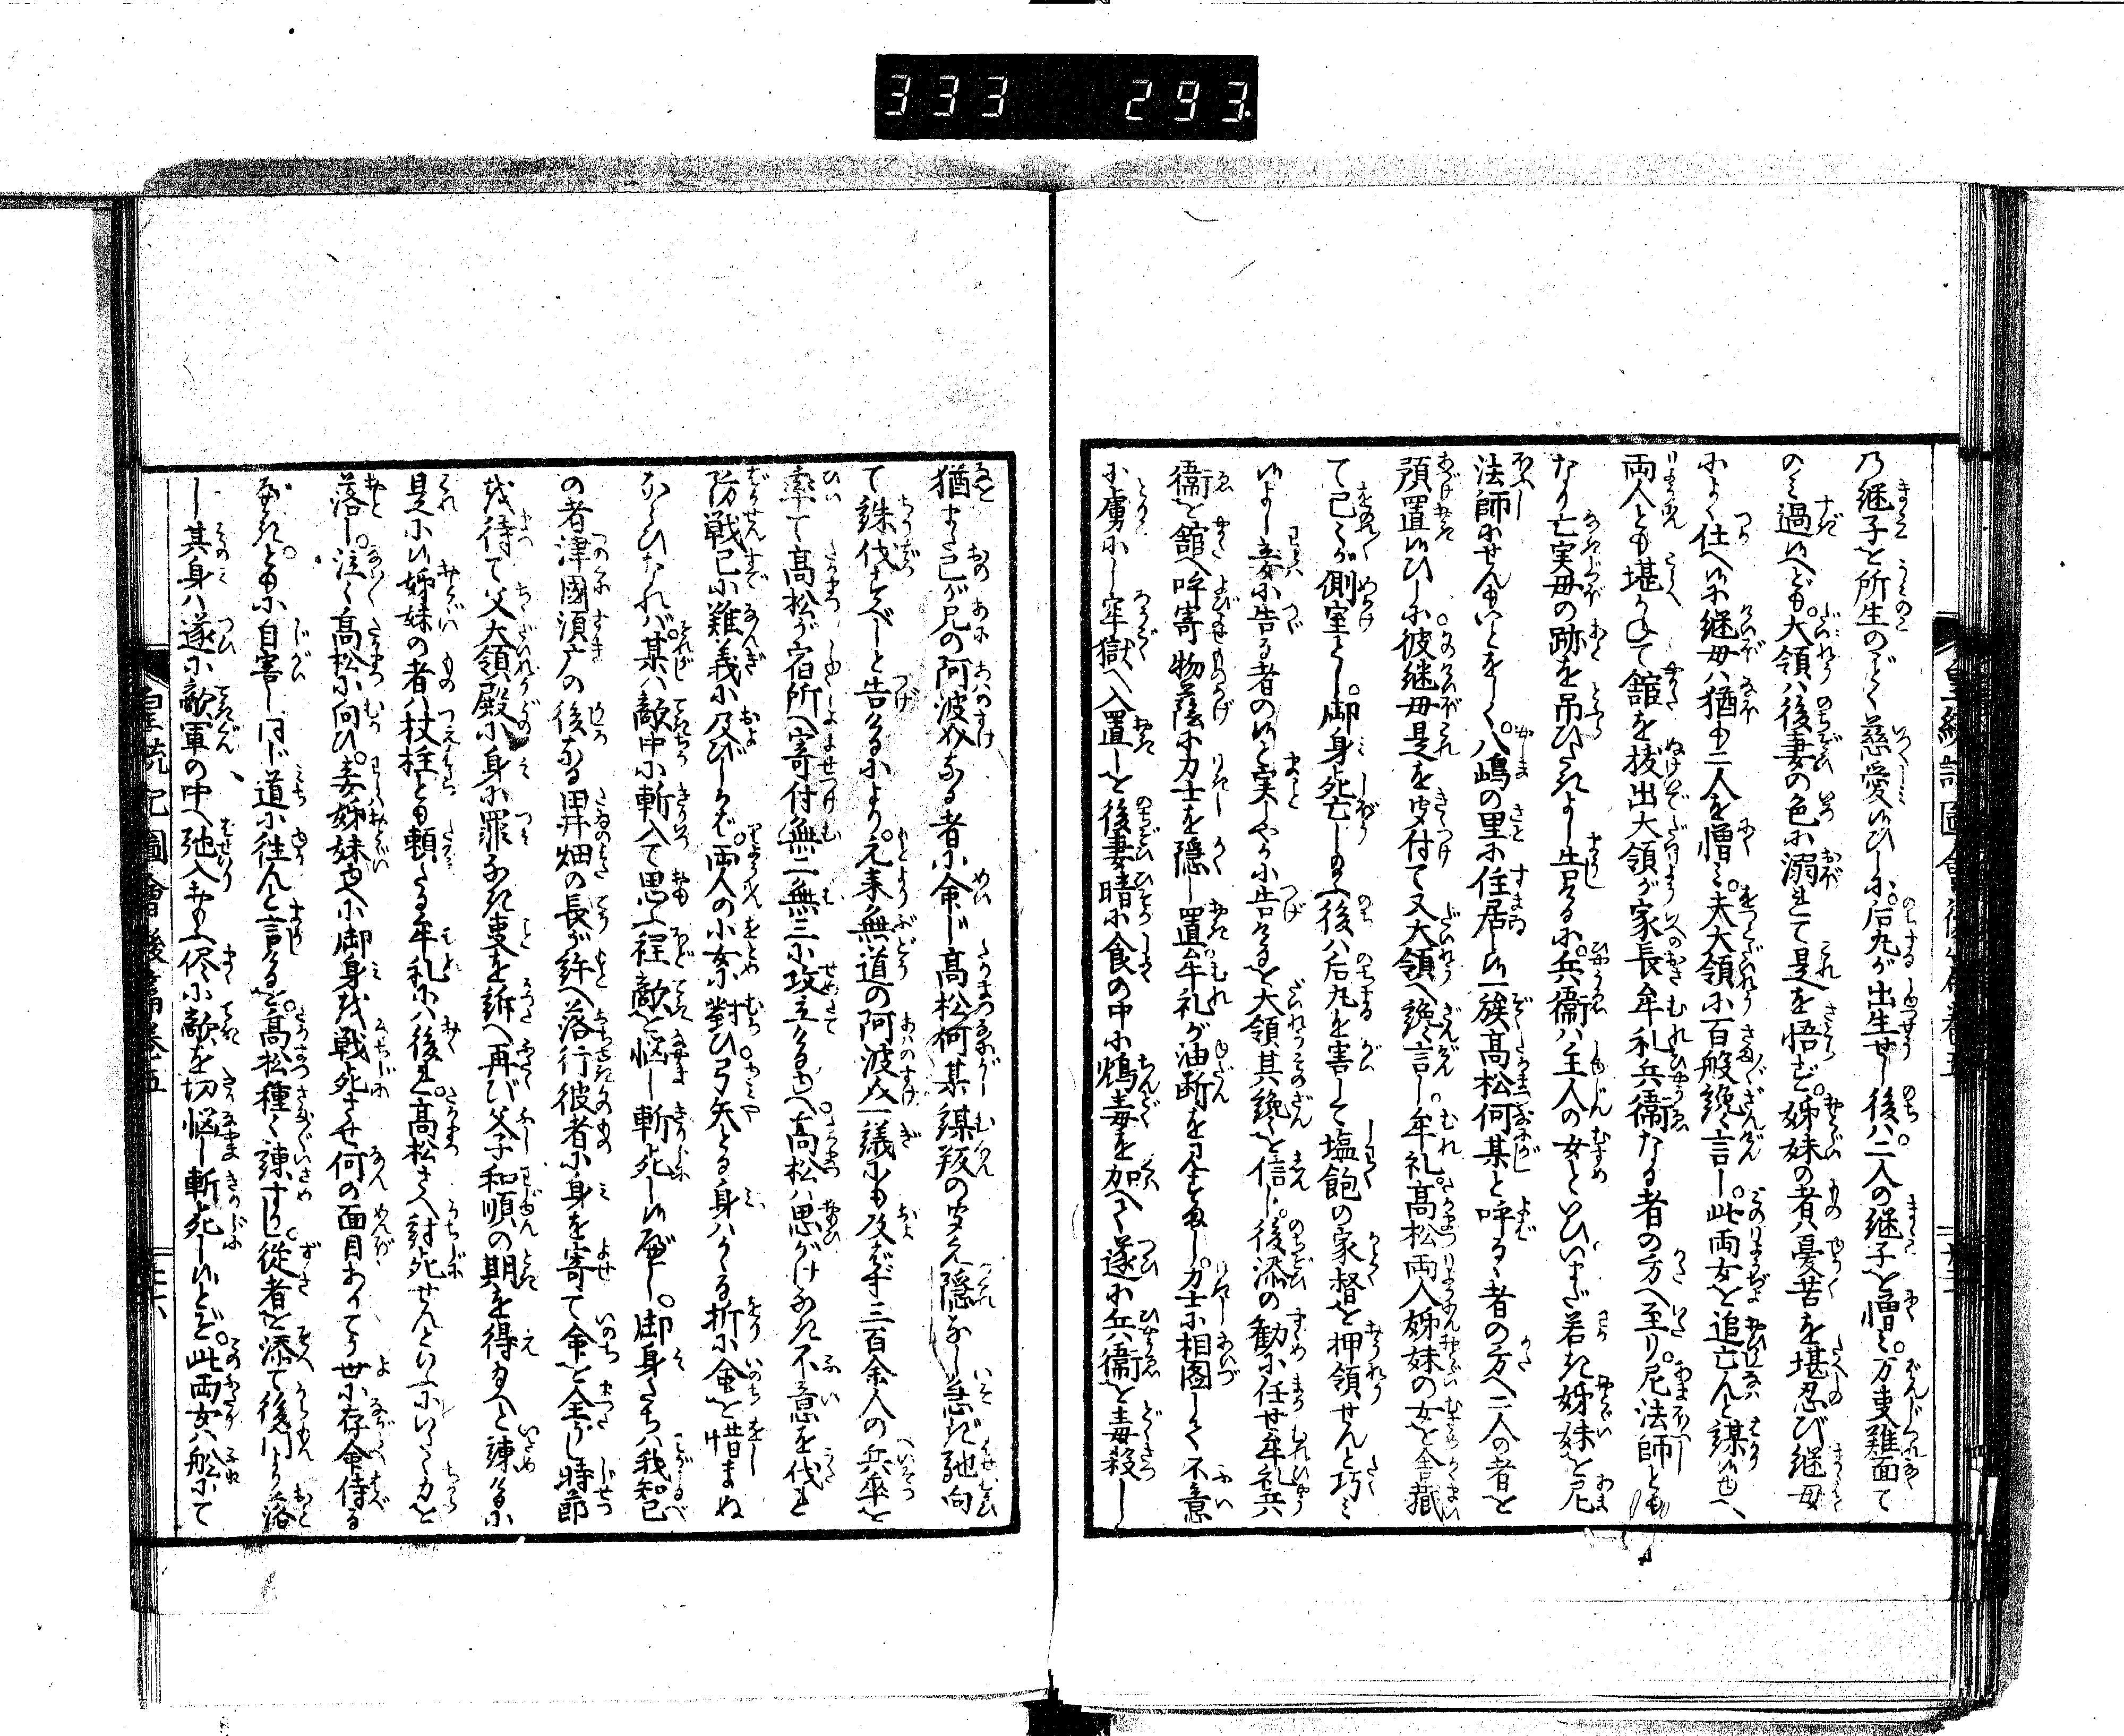 333 293.
乃継子を所生のごとく慈愛いひしに。后九が出生せし後ハ二人の継子を憎ミ。万事難面て
のミ過いへども。大領ハ後妻の色に溺れて是を悟らず。姉妹の者ハ憂苦を堪忍び継母
によく仕へいに継母ハ猶も二人を憎ミ。夫大領に百般讒言し。此両女を追亡んと謀いゆへ、
両人とも堪かねて舘を抜出大領が家長牟礼兵衞なる者の方へ至り。尼法師とも
なり亡実母の跡を吊ひたきよし告るに。兵衞ハ主人の女といひいまだ若き姉妹を尼
法師にせんもいとをしく。八嶋の里に住居しい一族高松何某と呼るゝ者の方へ二人の者を
預置いひしに彼継母是を聞付て又大領へ讒言し。牟礼。高松両人姉妹の女を舎蔵
て己が側室とし。御身死亡しのへ後ハ后九を害して塩飽の家督を押領せんと巧ミ
いよし妾に告る者のいと実しやかに告るを大領其讒を信し。後添の勧に任せ牟礼兵
衞を舘へ呼寄物蔭に力士を隠し置牟礼が油断を見すまし。力士に相圖して不意
に虜にし牢獄へ入置しを後妻暗に食の中に鴆毒を加へて遂に兵衞を毒殺し
猶また己が兄の阿波介なる者に命じ高松何某謀叛の聞え隠なし急ぎ馳向
て誅伐すべしと告るにより。元来無道の阿波介一議にも及ばず三百余人の兵卒を
率て高松が宿所へ寄付無二無三に攻立るゆへ。高松ハ思がけなき不意を伐れ
防戦已に難義に及びしかば。両人の小女に對ひ弓矢とる身ハかゝる折に命を惜まぬ
ならひなれバ。某ハ敵中に斬入て思ふ程敵を悩し斬死しいべし。御身たちハ我知己
の者津國須广の後なる畀畑の長が許へ落行彼者に身を寄て命を全ふし時節
を待て父大領殿に身に罪なき事を訴へ再び父子和順の期を得るへと諫るに
是にい姉妹の者ハ杖柱とも頼たる牟礼にハ後れ。高松さへ討死せんといふにいとゞ力を
落し。泣く高松に向ひ。妾姉妹ゆへに御身を戦死させ何の面目ありてか世に存命侍る
べき。ともに自害し同じ道に徃んと言るを。高松種々諫すかし。從者を添て後門より落
し其身ハ遂に敵軍の中へ馳入おもふ侭に敵を切悩し斬死しいとぞ。此両女ハ舩にて
皇統記圖會後篇巻五